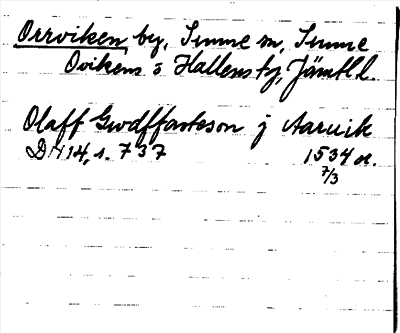 Orrviken by, Sunne sn, Sunne
Ovikens o Hallens tg, Jämtl l.
Olaff Gwdffasteson j Aarwik
D 114, s. 737 1534 or.
7/3